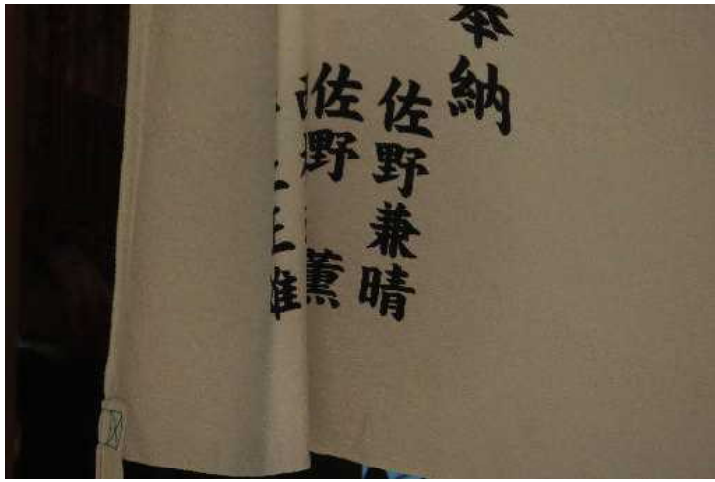 奉納
佐野兼晴
佐野薫